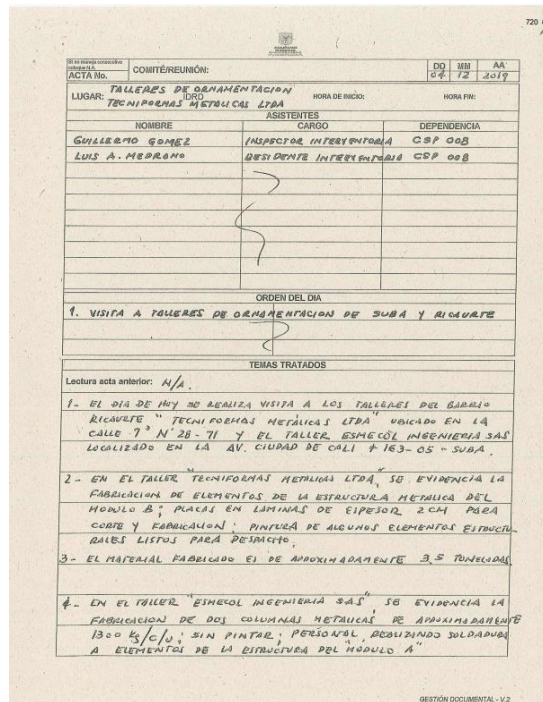 720
Si no maneja consecutivo
coloque N.A.
ACTA No.
COMITÉ/REUNIÓN:
DD MM AA
04 12 2019
LUGAR: TALLERES DE ORNAMENTACION
IDRD
TECNIFORMAS METALICAS LTDA
HORA DE INICIO:
HORA FIN:
ASISTENTES
NOMBRE CARGO DEPENDENCIA
GUILLERMO GOMEZ INSPECTOR INTERVENTORIA CSP 008
LUIS A. MEDRANO RESIDENTE INTERVENTORIA CSP 008
ORDEN DEL DIA
1. VISITA A TALLERES DE ORNAMENTACION DE SUBA Y RICAURTE
TEMAS TRATADOS
Lectura acta anterior: N/A.
1- EL DIA DE HOY SE REALIZA VISITA A LOS TALLERES DEL BARRIO
RICAURTE "TECNIFORMAS METÁLICAS LTDA" UBICADO EN LA
CALLE 7ª N° 28-71 Y EL TALLER ESMECOL INGENIERIA SAS
LOCALIZADO EN LA AV. CIUDAD DE CALI # 163-05 - SUBA.
2- EN EL TALLER "TECNIFORMAS METALICAS LTDA", SE EVIDENCIA LA
FABRICACION DE ELEMENTOS DE LA ESTRUCTURA METALICA DEL
MODULO B; PLACAS EN LAMINAS DE ESPESOR 2CM PARA
CORTE Y FABRICACION; PINTURA DE ALGUNOS ELEMENTOS ESTRUCTU-
RALES LISTOS PARA DESPACHO.
3- EL MATERIAL FABRICADO ES DE APROXIMADAMENTE 3,5 TONELADAS
4- EN EL TALLER "ESMECOL INGENIERIA SAS", SE EVIDENCIA LA
FABRICACION DE DOS COLUMNAS METALICAS DE APROXIMADAMENTE
1300 Kg/c/u; SIN PINTAR; PERSONAL REALIZANDO SOLDADURA
A ELEMENTOS DE LA ESTRUCTURA DEL "MODULO A"
GESTIÓN DOCUMENTAL - V.2